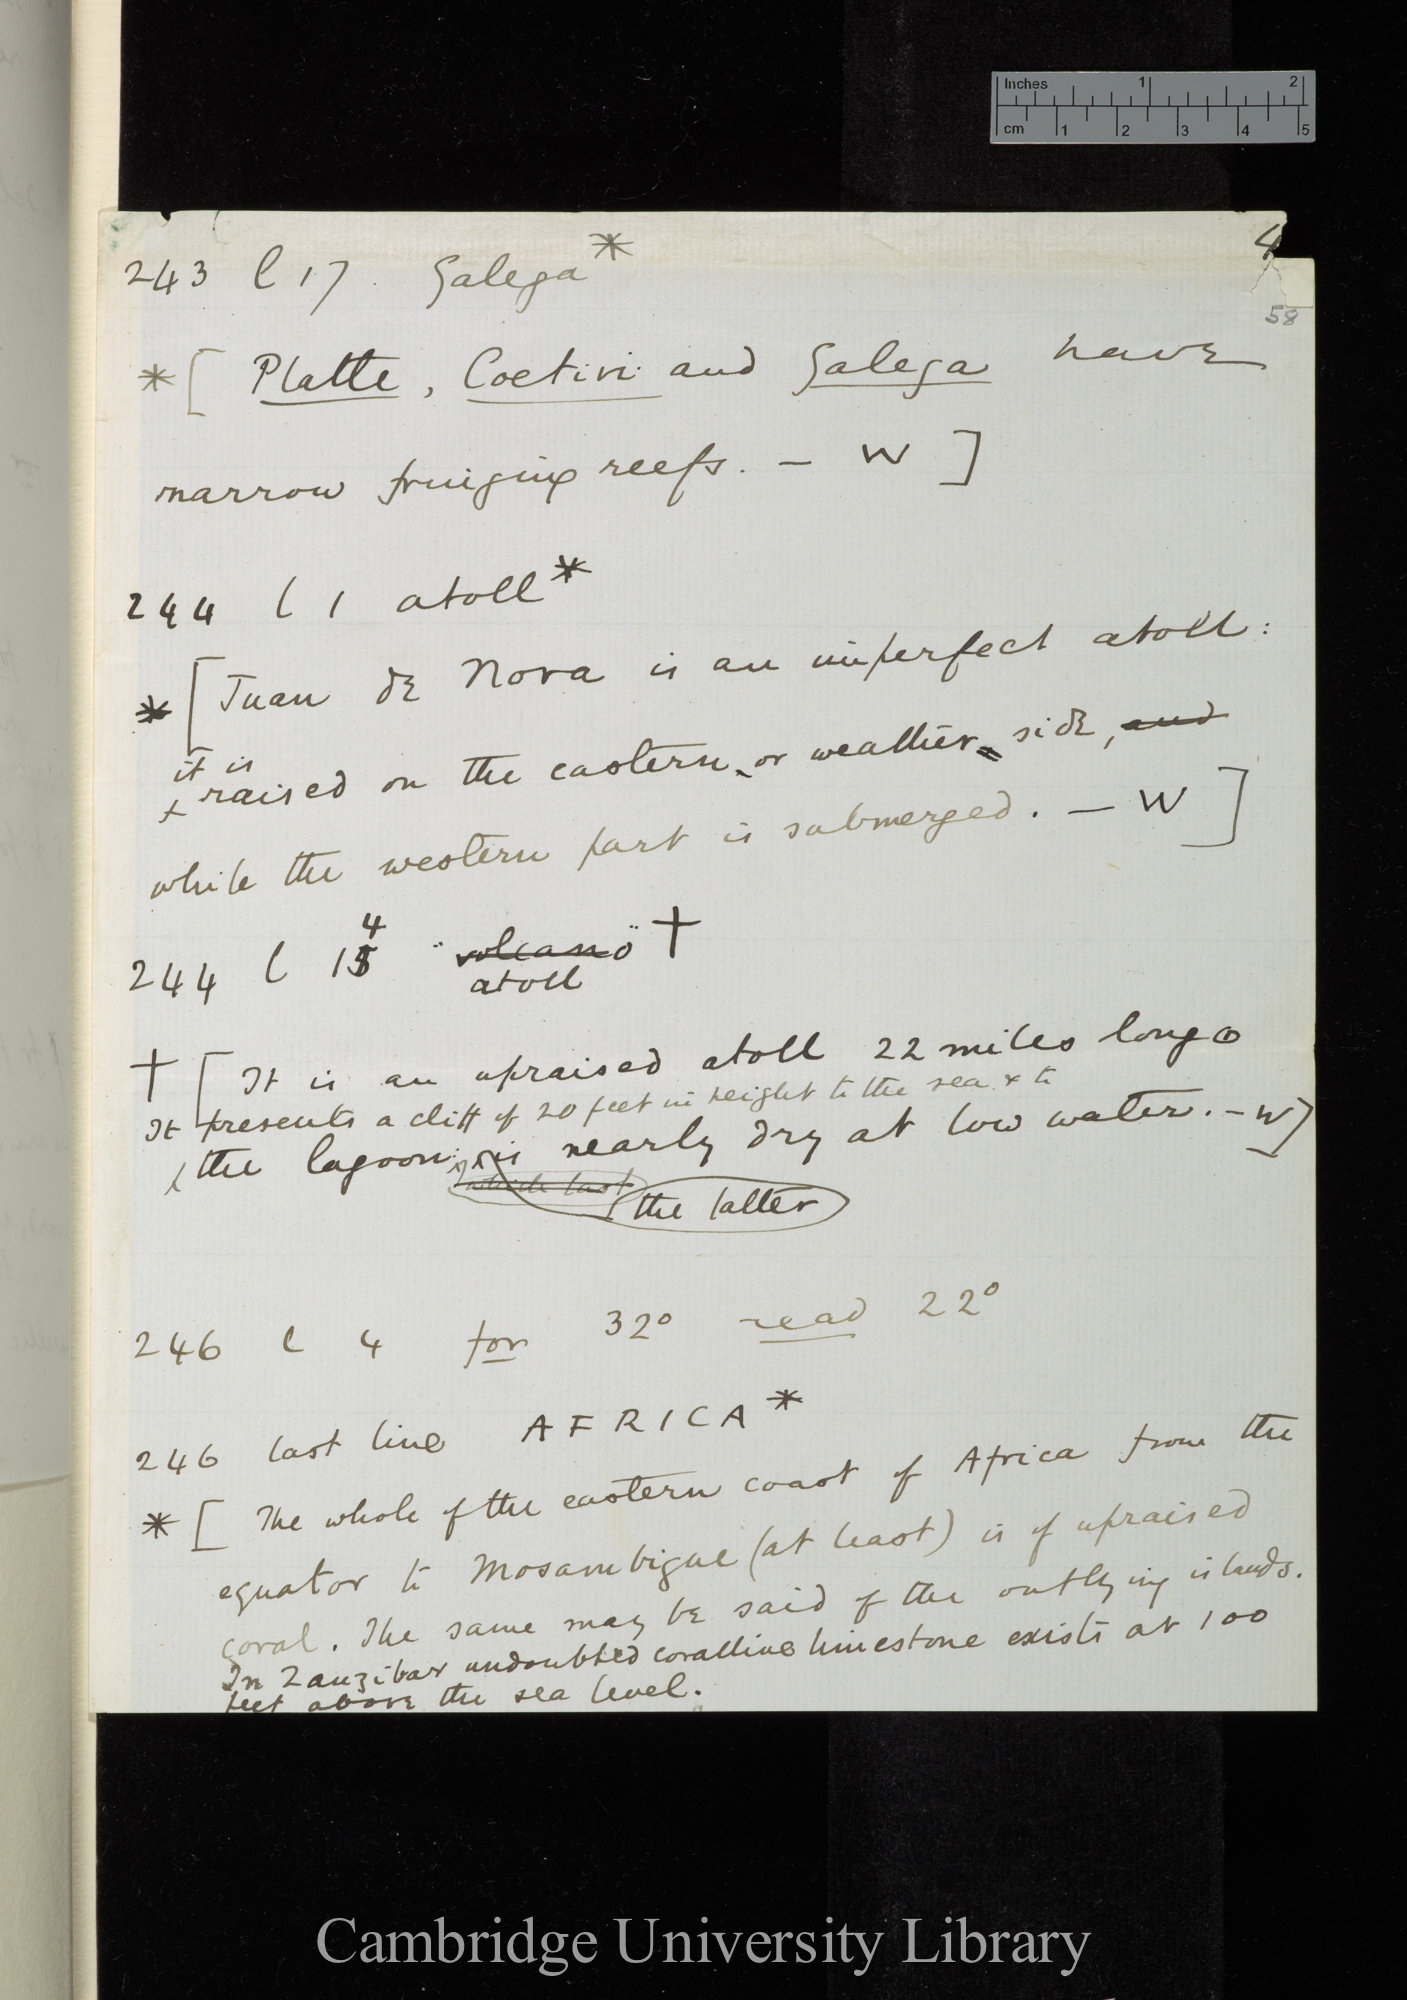 Inches 1 2
cm 1 2 3 4 5
4
58
243 l 17. Galega*
*[ Platte, Coetivi and Galega have
narrow fringing reefs. — W ]
244 l 1 atoll*
*[ Juan de Nova is an imperfect atoll:
it is
raised on the eastern, or weather-side, and
while the western part is submerged. — W ]
4
244 l 15 "volcano" †
atoll
† [ It is an upraised atoll 22 miles long
It presents a cliff of 20 feet in height to the sea & to
the lagoon: is nearly dry at low water. — W]
which last
the latter
246 l 4 for 32° read 22°
246 last line AFRICA*
*[ The whole of the eastern coast of Africa from the
equator to Mosambique (at least) is of upraised
coral. The same may be said of the outlying islands.
In Zanzibar undoubted coralline limestone exists at 100
feet above the sea level.
Cambridge University Library